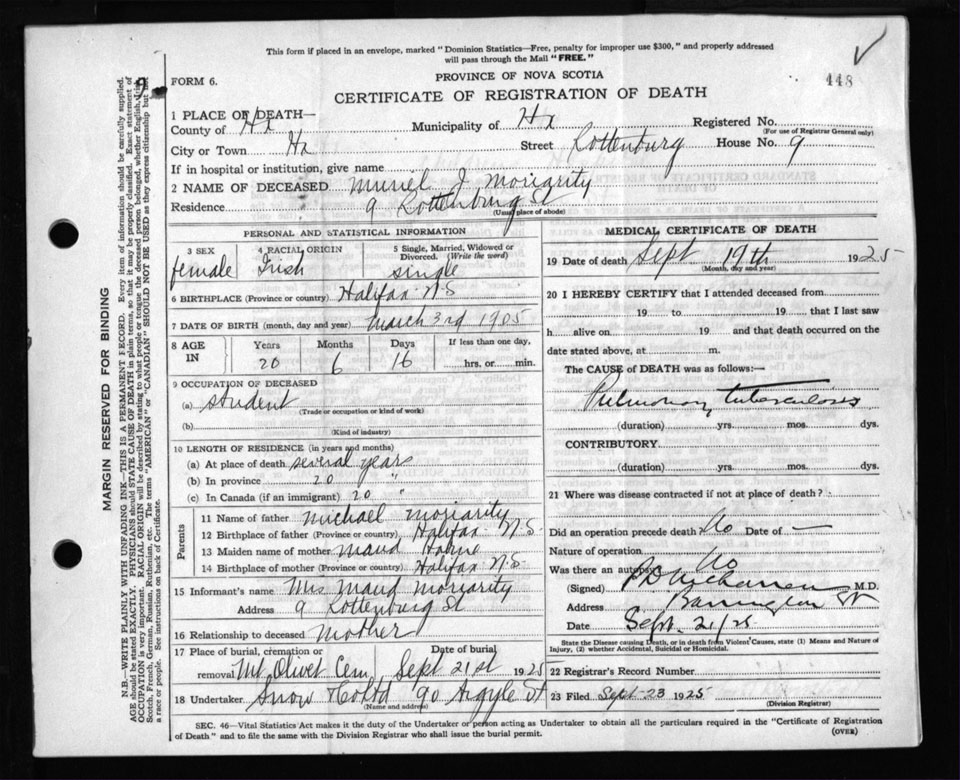 This form if placed in an envelope, marked "Dominion Statistics—Free, penalty for improper use $300," and properly addressed
will pass through the Mail "FREE."
448
FORM 6.
PROVINCE OF NOVA SCOTIA
CERTIFICATE OF REGISTRATION OF DEATH
1 PLACE OF DEATH—
County of Hx Municipality of Hx Registered No.
(For use of Registrar General only)
City or Town Hx Street Rottenburg House No. 9
If in hospital or institution, give name
2 NAME OF DECEASED Muriel J Moriarity
Residence 9 Rottenburg St
(Usual place of abode)
PERSONAL AND STATISTICAL INFORMATION
3 SEX 4 RACIAL ORIGIN 5 Single, Married, Widowed or
Divorced. (Write the word)
female Irish single
6 BIRTHPLACE (Province or country) Halifax N.S
7 DATE OF BIRTH (month, day and year) March 3rd 1905
8 AGE IN Years Months Days If less than one day,
20 6 16 hrs. or min.
9 OCCUPATION OF DECEASED
(a) student
(Trade or occupation or kind of work)
(b)
(Kind of industry)
10 LENGTH OF RESIDENCE (in years and months)
(a) At place of death several years
(b) In province 20 "
(c) In Canada (if an immigrant) 20 "
Parents
11 Name of father Michael Moriarity
12 Birthplace of father (Province or country) Halifax N.S
13 Maiden name of mother Maud
14 Birthplace of mother (Province or country) Halifax N.S
15 Informant's name Mrs Maud Moriarity
Address 9 Rottenburg St
16 Relationship to deceased Mother
17 Place of burial, cremation or removal Mt Olivet Cem Date of burial Sept 21st 1925
18 Undertaker Snow & Co Ltd 90 Argyle St
(Name and address)
MEDICAL CERTIFICATE OF DEATH
19 Date of death Sept 19th 1925
(Month, day and year)
20 I HEREBY CERTIFY that I attended deceased from
19 to 19 that I last saw
h alive on 19 and that death occurred on the
date stated above, at m.
The CAUSE of DEATH was as follows:—
Pulmonary tuberculosis
(duration) yrs. mos. dys.
CONTRIBUTORY
(duration) yrs. mos. dys.
21 Where was disease contracted if not at place of death?
Did an operation precede death? No Date of —
Nature of operation
Was there an autopsy? No
(Signed) M.D.
Address Barrington St
Date Sept. 21/25
State the Disease causing Death, or in death from Violent Causes, state (1) Means and Nature of
Injury, (2) whether Accidental, Suicidal or Homicidal.
22 Registrar's Record Number
23 Filed Sept-23 1925
(Division Registrar)
SEC. 46—Vital Statistics Act makes it the duty of the Undertaker or person acting as Undertaker to obtain all the particulars required in the "Certificate of Registration
of Death" and to file the same with the Division Registrar who shall issue the burial permit.
(OVER)
MARGIN RESERVED FOR BINDING
N.B.—WRITE PLAINLY WITH UNFADING INK—THIS IS A PERMANENT RECORD. Every item of information should be carefully supplied.
AGE should be stated EXACTLY. PHYSICIANS should STATE CAUSE OF DEATH in plain terms, so that it may be properly classified. Exact statement of
OCCUPATION is very important. RACIAL ORIGIN will be described by stating to what people or tongue the deceased person belonged, whether English, Irish,
Scotch, French, German, Russian, Ruthenian, etc. The terms "AMERICAN" or "CANADIAN" SHOULD NOT BE USED as they express citizenship but not
a race or people. See instructions on back of Certificate.